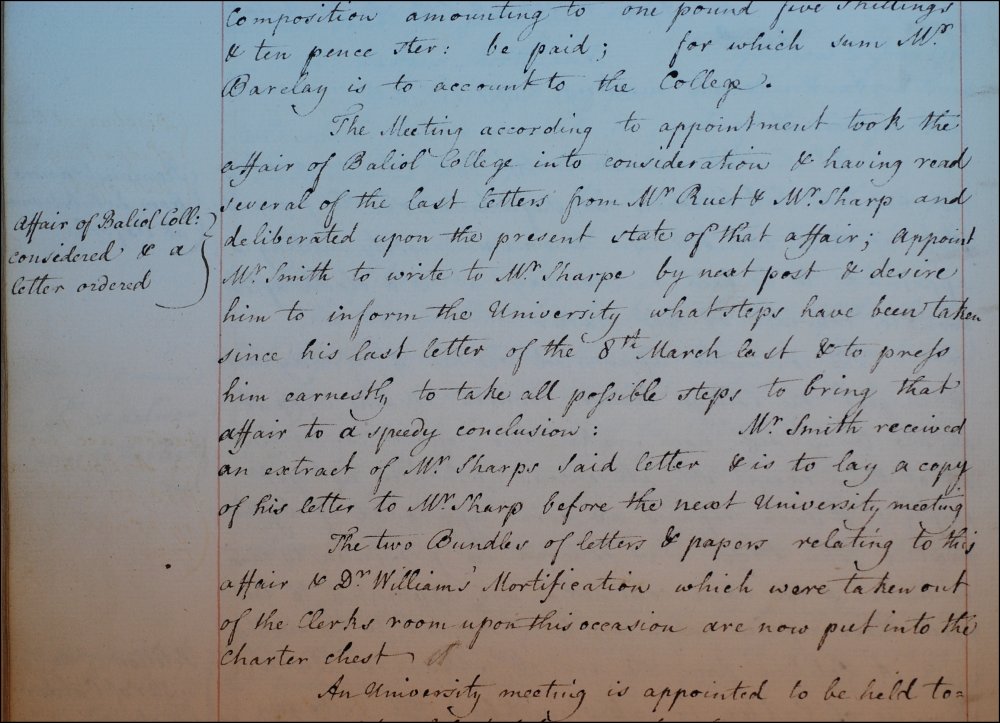 Composition amounting to one pound five shillings
& ten pence ster: be paid; for which sum Mr
Barclay is to account to the College.
The Meeting according to appointment took the
affair of Baliol College into consideration & having read
several of the last letters from Mr Ruet & Mr Sharp and
deliberated upon the present state of that affair; Appoint
Mr Smith to write to Mr Sharpe by next post & desire
him to inform the University what steps have been taken
since his last letter of the 8th March last & to press
him earnestly to take all possible steps to bring that
affair to a speedy conclusion: Mr Smith received
an extract of Mr Sharps said letter & is to lay a copy
of his letter to Mr Sharp before the next University meeting
The two Bundles of letters & papers relating to this
affair & Dr Williams' Mortification which were taken out
of the Clerks room upon this occasion are now put into the
Charter chest
An University meeting is appointed to be held to=
Affair of Baliol Coll:
considered & a
letter ordered